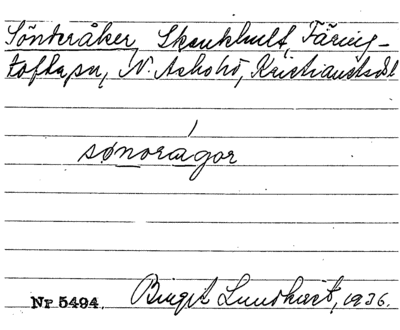 Sönderåker, Skånkhult, Färing-
tofta sn, N. Åsbohd, Kristianstads l
sønorågor
Nr 5494. Birgit Lundkvist, 1936.